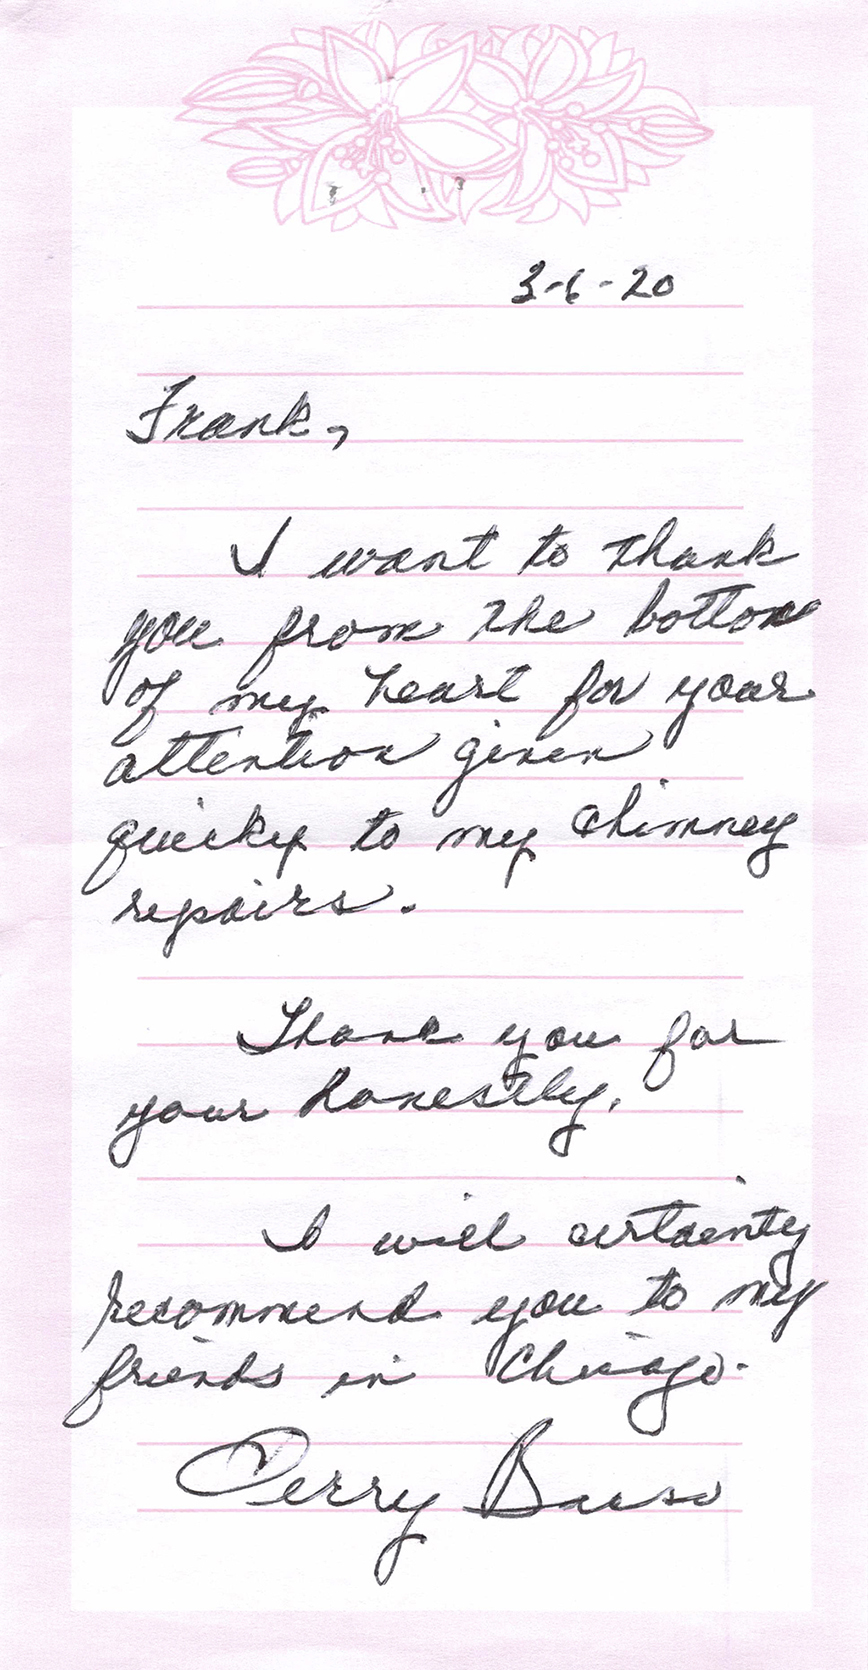 3-6-20
Frank,
I want to thank
you from the bottom
of my heart for your
attention given
quicky to my chimney
repairs.
Thank you for
your honestly.
I will certainty
recommend you to my
friends in Chicago.